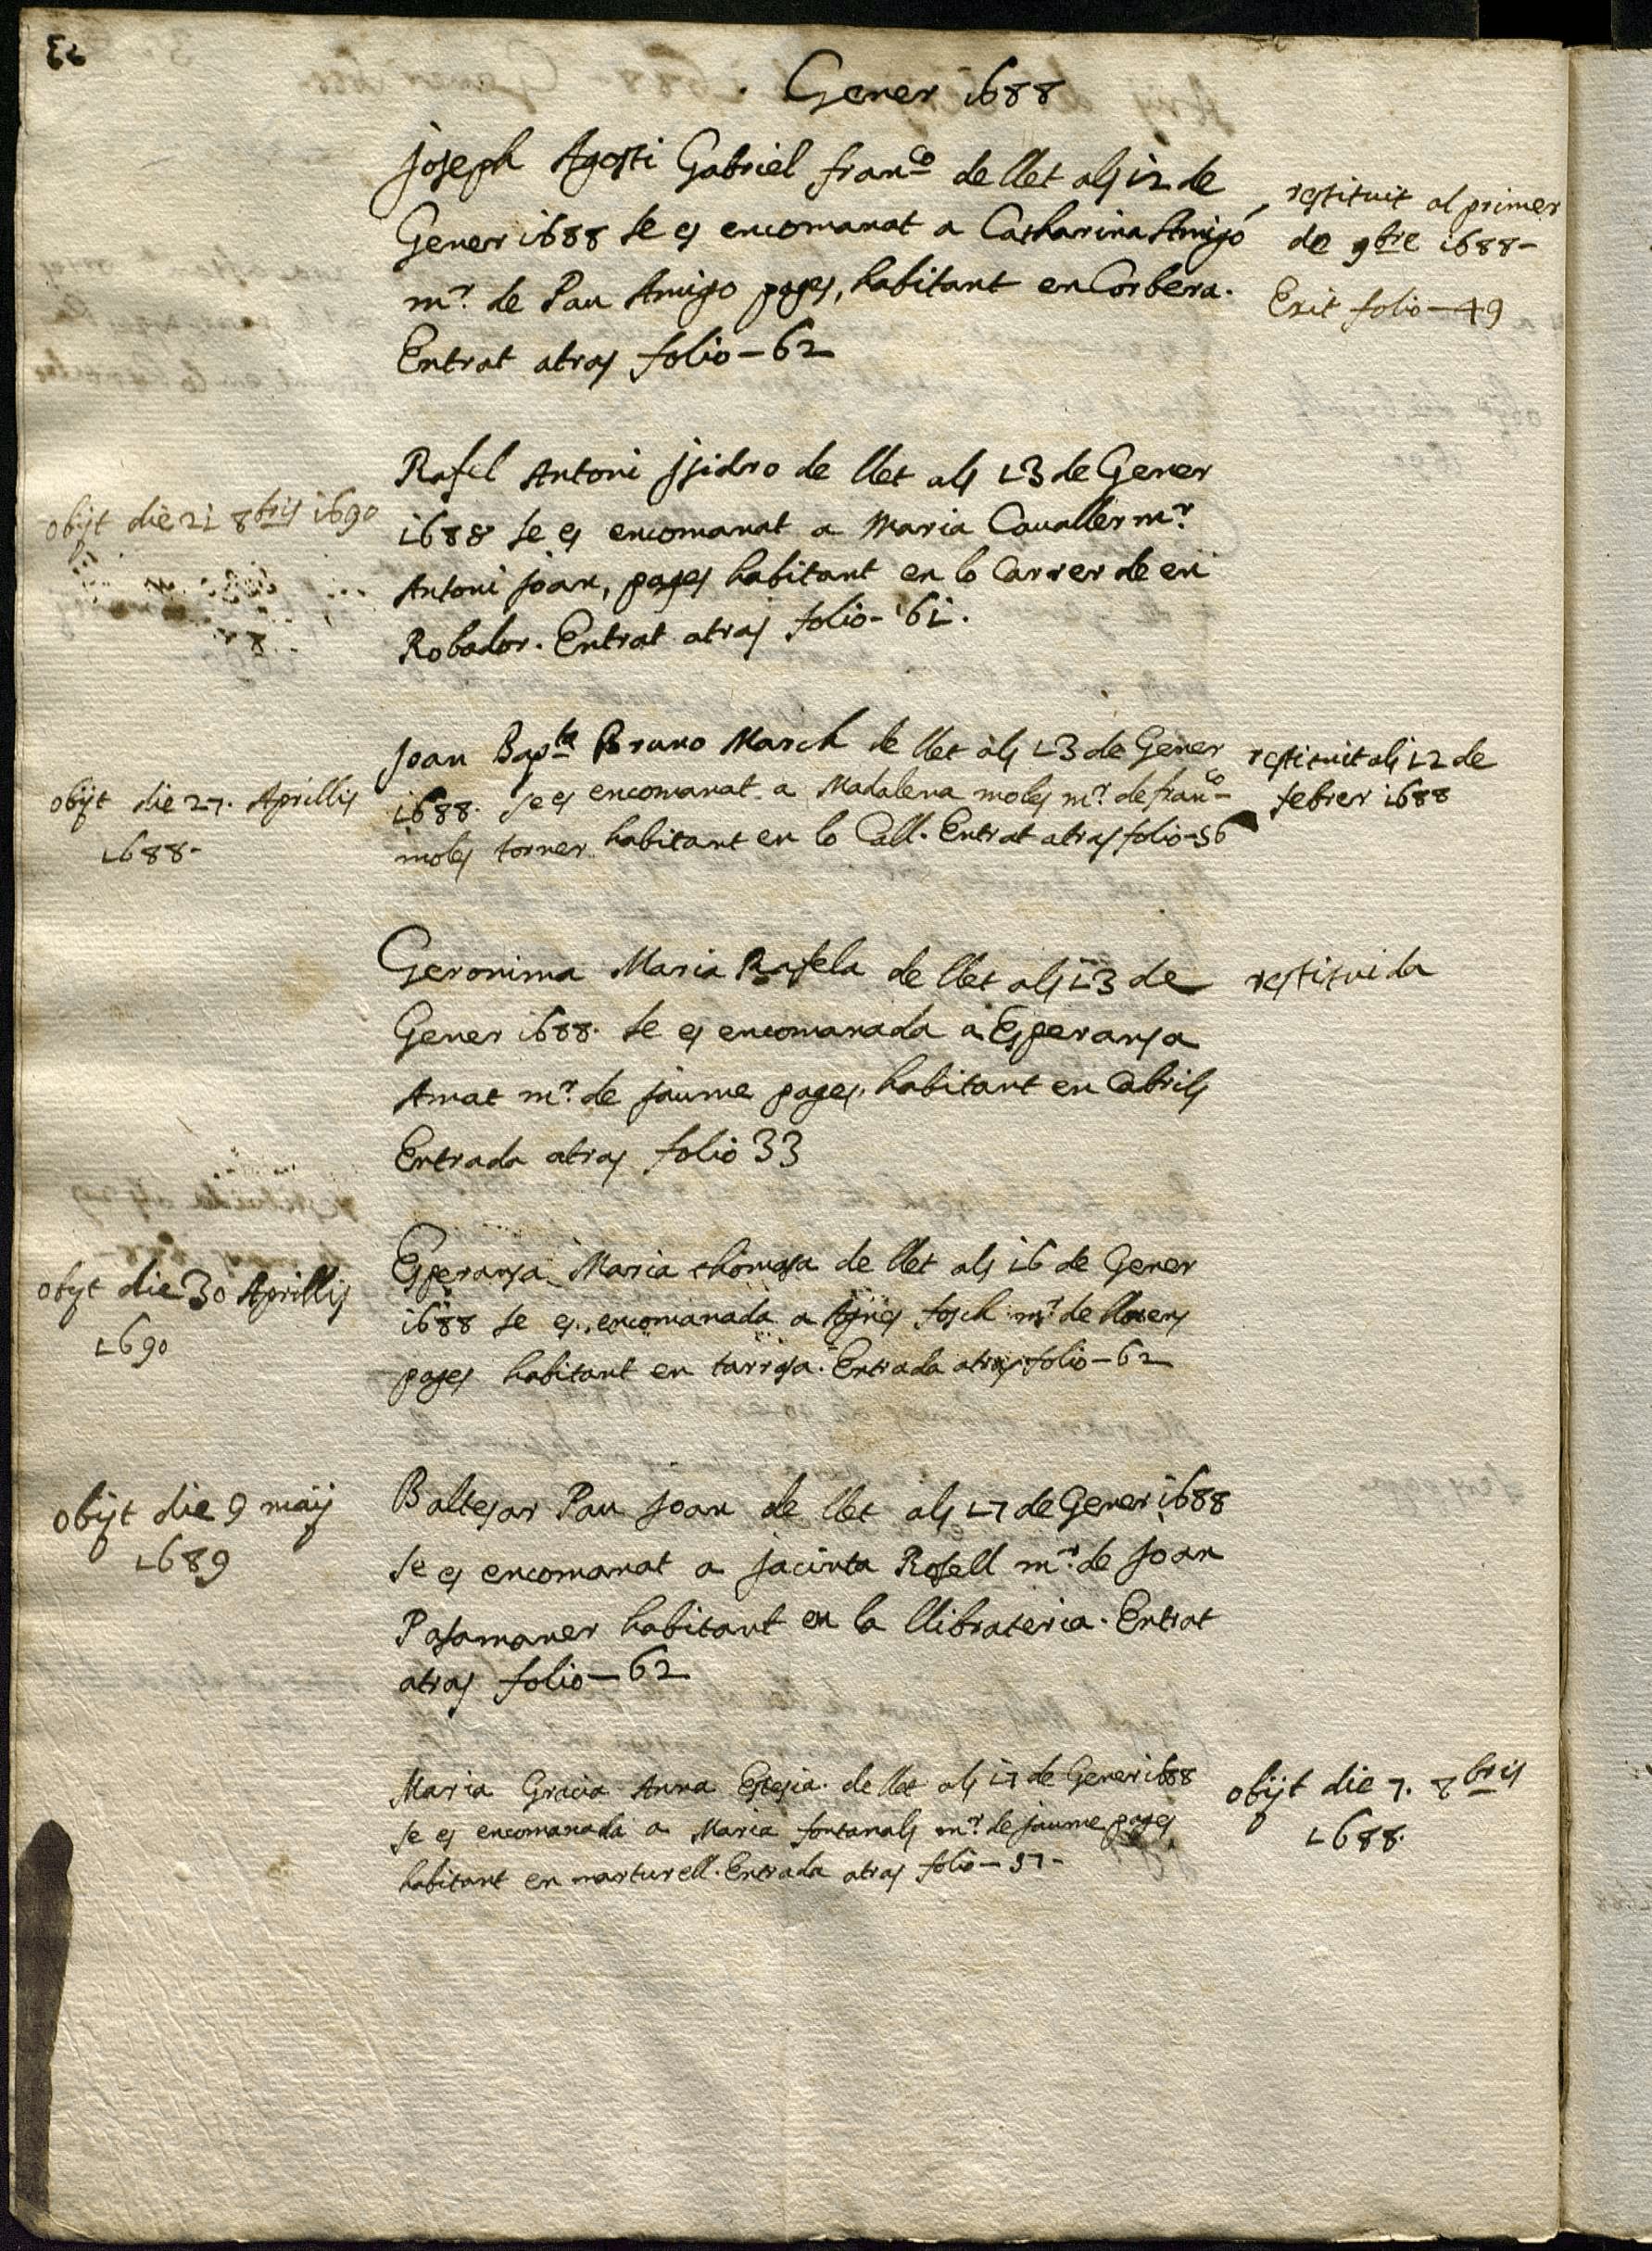 Gener 1688
Joseph Agosti Gabriel fran^co de llet als 12 de
Gener 1688 se es encomanat a Catharina Amigó
m^r. de Pau Amigo pages, habitant en Corbera.
Entrat atras folio - 62
restituit al primer
de 9bre 1688 -
Exit folio - 49
obijt die 21 8bris 1690
Rafel Antoni Jsidro de llet als 13 de Gener
1688 se es encomanat a Maria Caualler m^r.
Antoni Joan, pages habitant en lo Carrer de en
Robador. Entrat atras folio - 61.
obijt die 27. Aprillis
1688 -
Joan Bap^ta Bruno March de llet als 13 de Gener
1688. se es encomanat a Madalena moles m^r. de fran^co
moles torner habitant en lo Call. Entrat atras folio - 56
restituit als 12 de
febrer 1688
Geronima Maria Rafela de llet als 13 de
Gener 1688. se es encomanada a Esperansa
Amat m^r. de Jaume pages, habitant en Cabrils
Entrada atras folio 33
restituida
obijt die 30 Aprillis
1690
Esperansa Maria thomasa de llet als 16 de Gener
1688 se es encomanada a Agnes fosch m^r. de llorens
pages habitant en tarrasa. Entrada atras folio - 62
obijt die 9 maij
1689
Baltesar Pau Joan de llet als 17 de Gener 1688
se es encomanat a Jacinta Rosell m^r. de Joan
Pasamaner habitant en la llibrateria. Entrat
atras folio - 62
Maria Gracia Anna de llet als 17 de Gener 1688
se es encomanada a Maria fontanals m^r. de Jaume pages
habitant en marturell. Entrada atras folio - 57 -
obijt die 7. 8bris
1688.